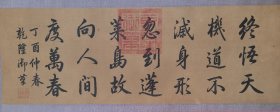 終悟天
機道不
滅身形
忽到蓬
萊島故
向人間
度萬春
丁酉仲春
乾隆御筆